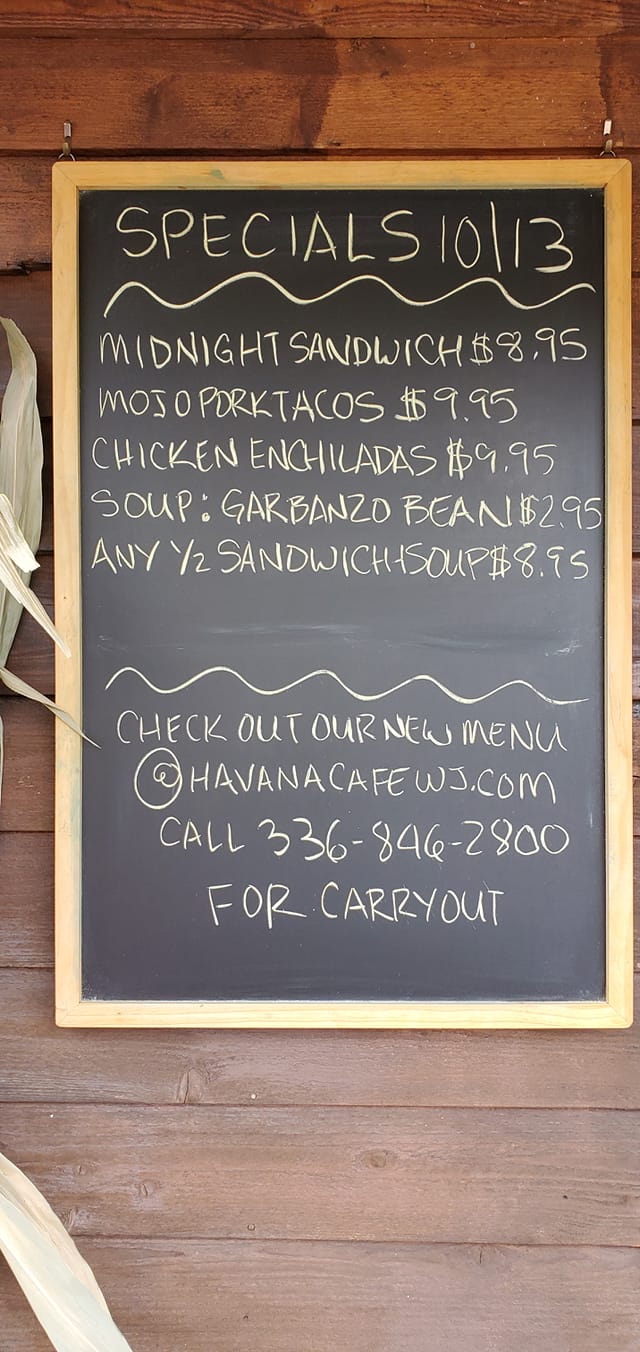 SPECIALS 10/13
MIDNIGHT SANDWICH $8.95
MOJO PORK TACOS $9.95
CHICKEN ENCHILADAS $9.95
SOUP: GARBANZO BEAN $2.95
ANY 1/2 SANDWICH+SOUP $8.95
CHECK OUT OUR NEW MENU
@HAVANACAFEWJ.COM
CALL 336-846-2800
FOR CARRYOUT